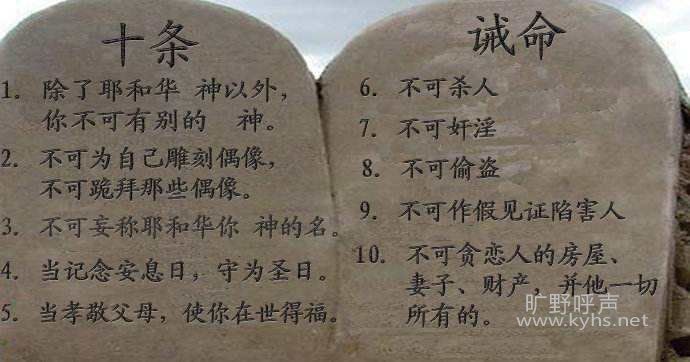 十条
1. 除了耶和华 神以外，
你不可有别的 神。
2. 不可为自己雕刻偶像，
不可跪拜那些偶像。
3. 不可妄称耶和华你 神的名。
4. 当记念安息日，守为圣日。
5. 当孝敬父母，使你在世得福。
诫命
6. 不可杀人
7. 不可奸淫
8. 不可偷盗
9. 不可作假见证陷害人
10. 不可贪恋人的房屋、
妻子、财产，并他一切
所有的。
旷野呼声
www.kyhs.net